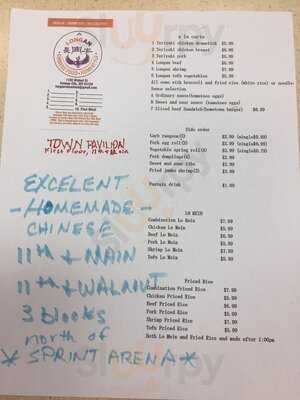 LONGAN
TOWN PAVILION
FIRST FLOOR, 11th & MAIN
EXCELENT
- HOMEMADE -
CHINESE
11th & MAIN
11th & WALNUT
3 blocks
north of
* SPRINT ARENA *
a la carte
1 Teriyaki chicken drumstick $5.99
2 Teriyaki chicken breast $5.99
3 Teriyaki pork
4 Longan beef $6.99
5 Longan shrimp $7.99
6 Longan tofu vegetables $5.99
all come with broccoli and fried rice (white rice) or noodle
Sauce selection
A Ordinary sauce
B Sweet and sour sauce
7 Sliced beef Sandwich $6.99
Side order
Crab rangoon
Pork egg roll
Vegetable spring roll
Pork dumplings
Sweet and sour ribs
Fried jumbo shrimp
Fantain drink $1.99
LO MEIN
Combination Lo Mein $7.99
Chicken Lo Mein $5.99
Beef Lo Mein $6.99
Pork Lo Mein $5.99
Shrimp Lo Mein $7.99
Tofu Lo Mein $5.99
Fried Rice
Combination Fried Rice $7.99
Chicken Fried Rice $5.99
Beef Fried Rice $6.99
Pork Fried Rice $5.99
Shrimp Fried Rice $7.99
Tofu Fried Rice $5.99
Both Lo Mein and Fried Rice end made after 1:00pm.